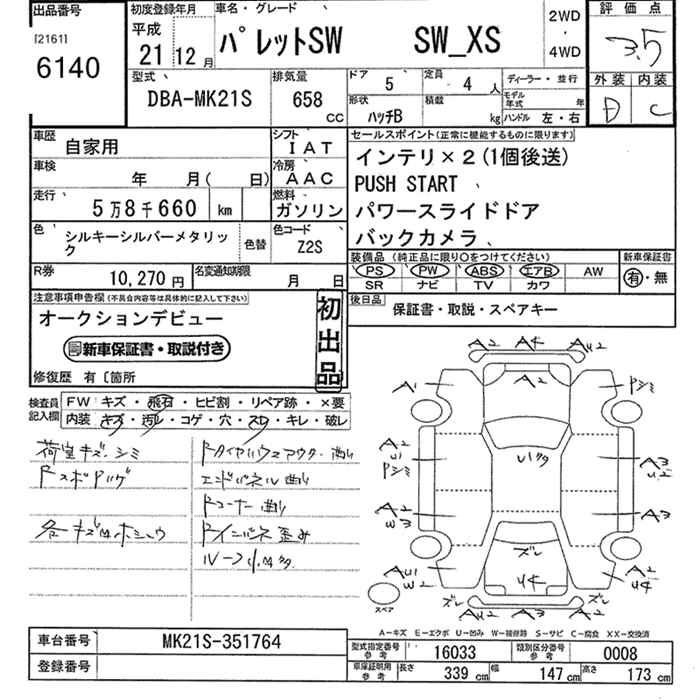 出品番号
[2161]
6140
初度登録年月
平成
21年 12月
車名・グレード
パレットSW SW_XS
2WD
・
4WD
評価点
3.5
外装 内装
D C
型式
DBA-MK21S
排気量
658 CC
ドア 5
定員 4人
形状 ハッチB
積載 kg
ディーラー・並行
モデル年式 年
ハンドル 左・右
車歴 自家用
シフト IAT
車検 年 月( 日)
冷房 AAC
走行 5万8千660 km
燃料 ガソリン
色 シルキーシルバーメタリック
色替
色コード Z2S
R券 10,270円
名変通知期限 月 日
セールスポイント(正常に機能するものに限ります)
インテリ×2(1個後送)
PUSH START
パワースライドドア
バックカメラ
装備品 (純正品に限り○をつけてください)
PS PW ABS エアB AW
SR ナビ TV カワ
新車保証書
有・無
後日品
保証書・取説・スペアキー
注意事項申告欄(不具合内容等は具体的に記入して下さい)
オークションデビュー
新車保証書・取説付き
初出品
修復歴 有〔箇所
検査員記入欄
FW キズ・飛石・ヒビ割・リペア跡・×要
内装 キズ・汚レ・コゲ・穴・スレ・キレ・破レ
荷室キズ・シミ
各キズ凹ホシュウ
エンドパネル曲り
Rコーナー曲り
A2 A4 AU2
A1
Pシミ
A2
U1
Pシミ
U1クタ
A3
U2
A2
W3
A3
ズレ
AU1
W2
U4
A2
U4
ズレ
A2 A3 A2
ズレ
スペア
A−キズ E−エクボ U−凹み W−補修跡 S−サビ C−腐食 XX−交換済
車台番号 MK21S-351764
登録番号
型式指定番号 参考 16033
類別区分番号 参考 0008
車庫証明用 参考 長さ 339cm 幅 147cm 高さ 173cm